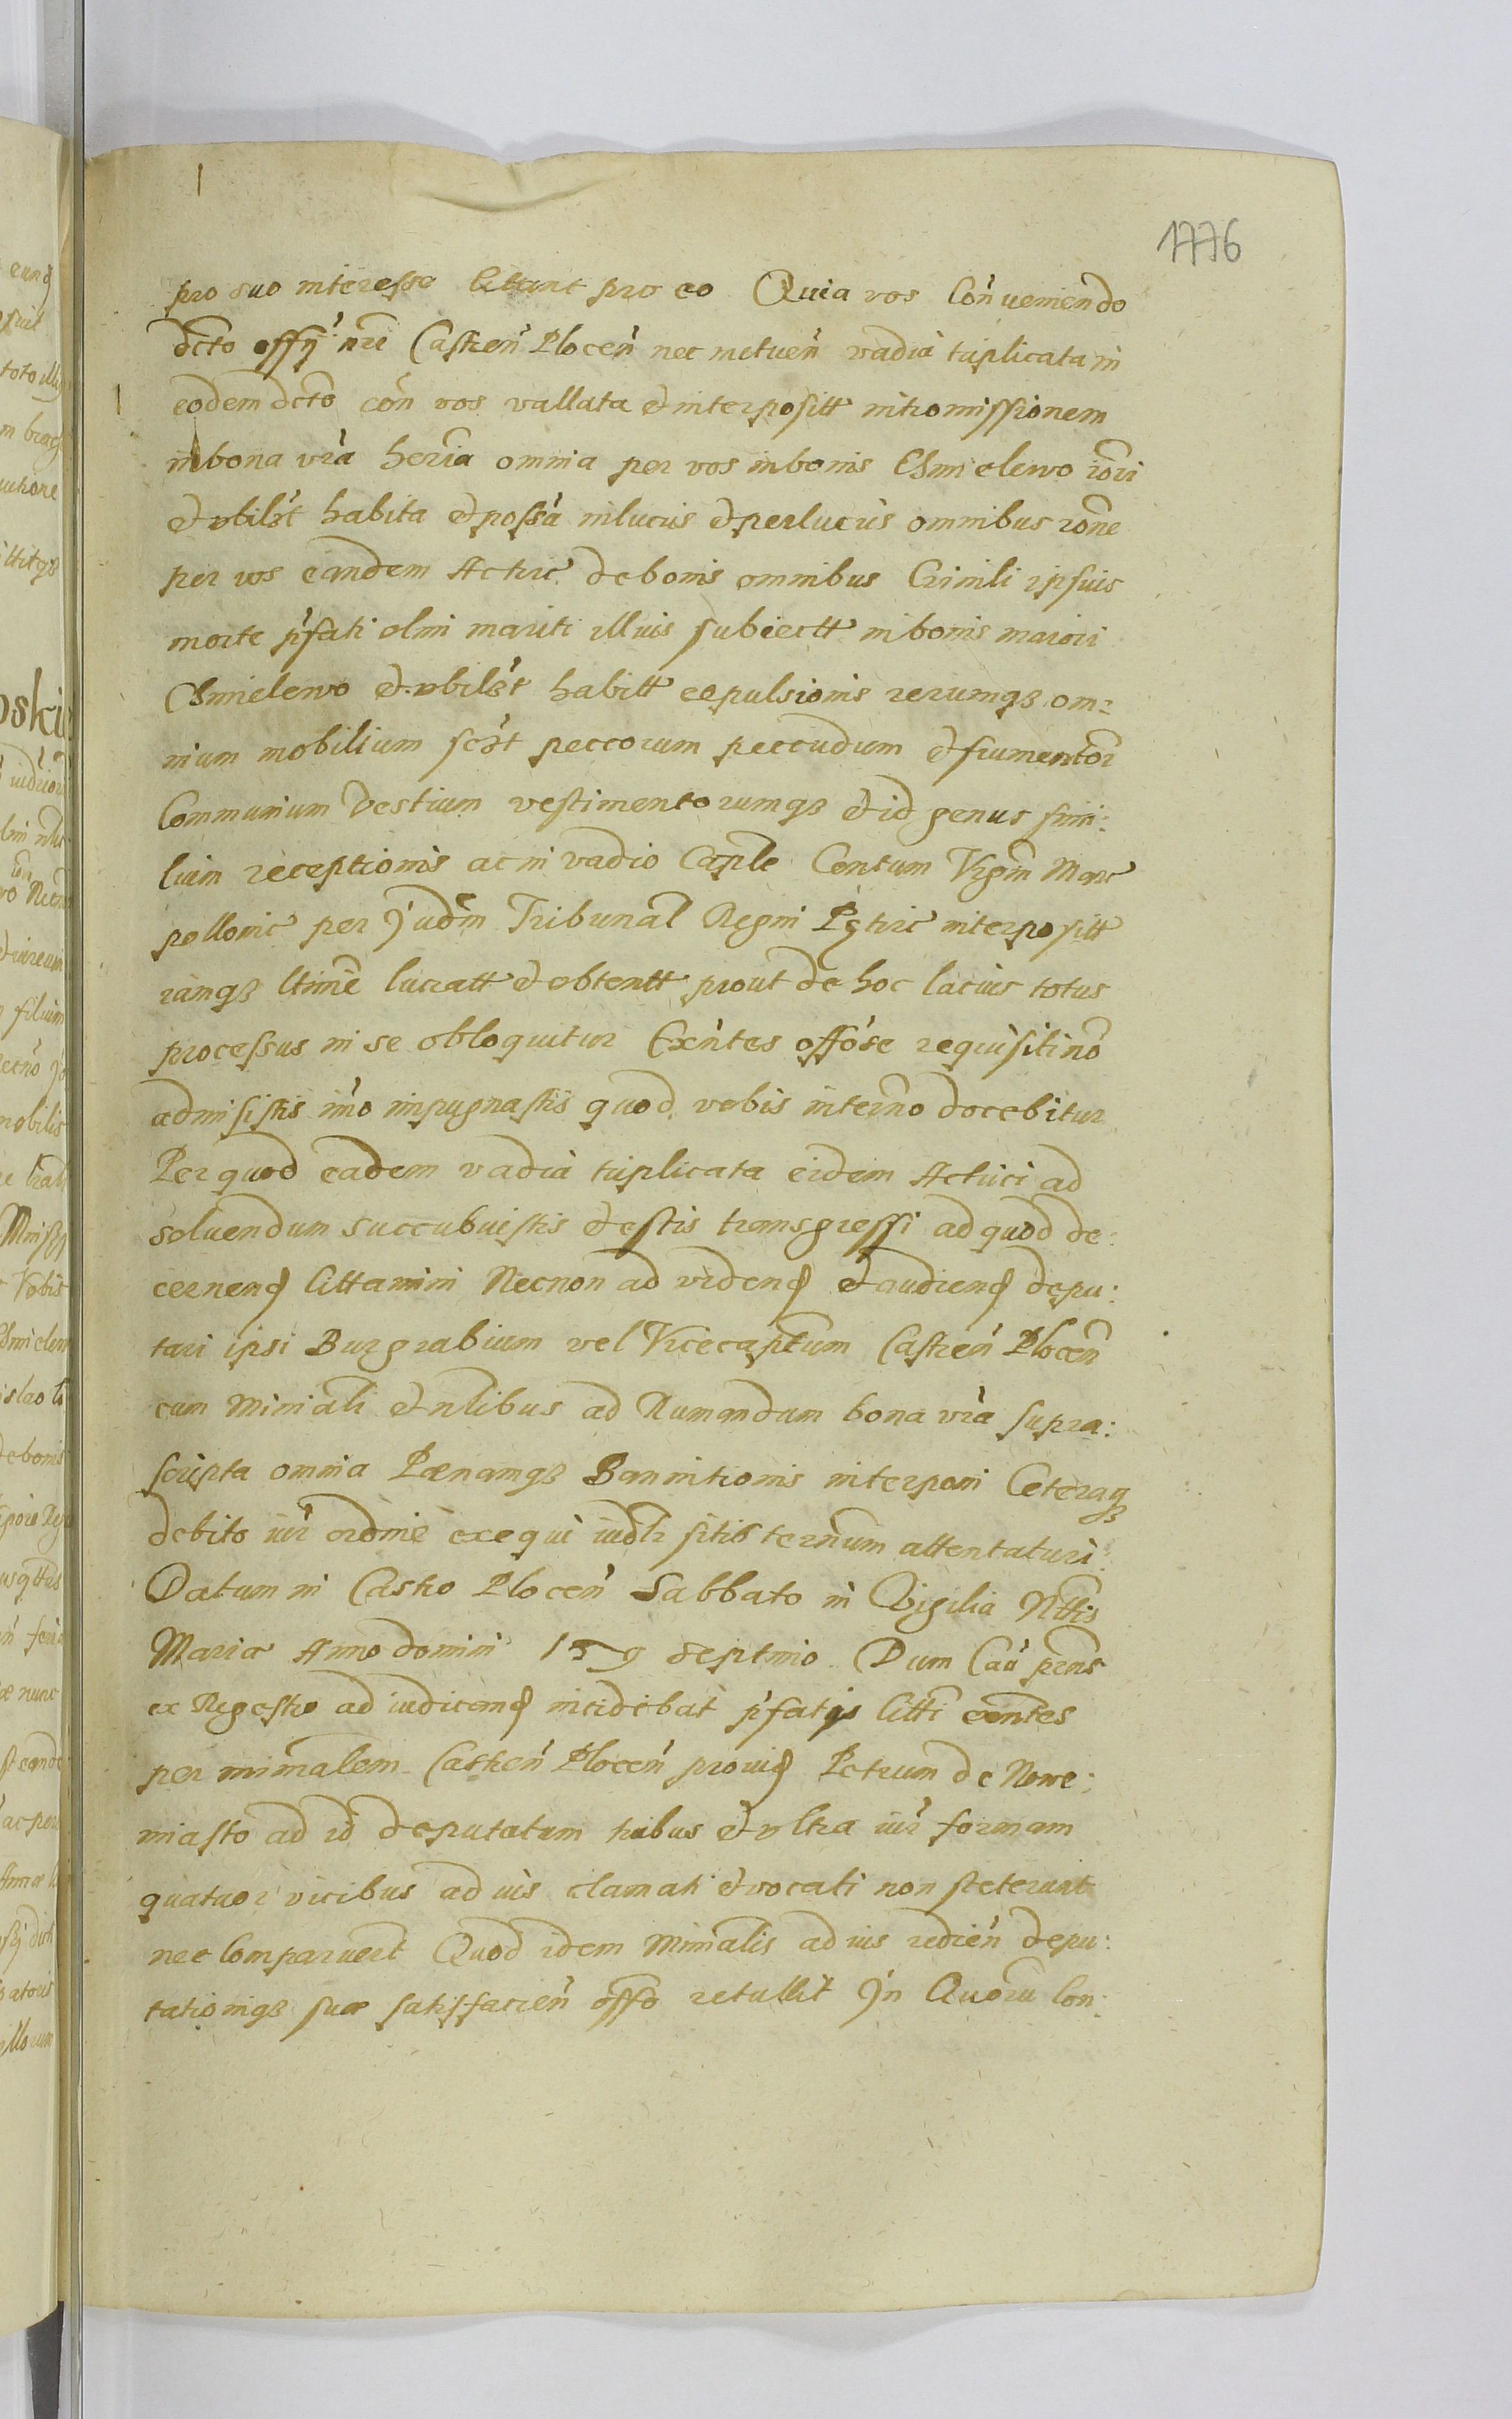 1776
pro suo interesse Cittant pro eo Quia vos Con̄ueniendo
dcto offy nri Castren̄ Plocen̄ nec metuen̄ vadia triplicata in
eodem dcto cōn vos vallata et interpositt intromissionem
in bona vrā heria omnia per vos in bonis Chmielewo iori
et vbilꝫt habita et possa in lucris et per lucris omnibus rōne
per vos eandem Actric de bonis omnibus Crinili ipsius
morte pfati olim mariti illius subiectt in bonis maiori
Chmielewo et vbilꝫt habitt expulsionis rerumqꝫ om⸗
nium mobilium scꝫt peccorum peccudum et frumentor
Communium Vestium vestimentorumqꝫ et id genus simi:
lium receptionis ac in vadio Caple Centum Vigin Marc
pollonic per Judm Tribunal Regni Petric interpositt
iamqꝫ ltime lucratt et obtentt prout de hoc latius totus
processus in se obloquitur Exn̄tes offose requisiti no
admisistis imo inpugnastis quod vobis interno docebitur
Per quod eadem vadia triplicata eidem Actrici ad
soluendum succubuistis et estis transgressi ad quod de:
cernend Cittamini Necnon ad vidend et audiend depu:
tari ipsi Burgrabium vel Vicecaptum Castren̄ Plocen̄
cum Miniali et nlibus ad Rumandum bona vrā supra:
scripta omnia Pænamqꝫ Bannitionis interponi Ceteraqꝫ
debito iur ordine exequi iudlr sitis ternum attentaturi
Datum in Castro Plocen̄ Sabbato in Vigilia Nttis
Mariæ Anno domini 159 septimo Dum Caū pn̄s
ex Regestro ad iudicand incidebat pfatis Citti exntes
per minialem Castren̄ Plocen̄ provid Petrum de Nowe:
miasto ad id deputatum tribus et vltra iur formam
quatuor vicibus ad ius clamati et vocati non steterunt
nec Comparuerūt Quod idem Minialis ad ius redien̄ depu:
tationiqꝫ suæ satisfacien̄ offo retullit Jn Quoru Con: